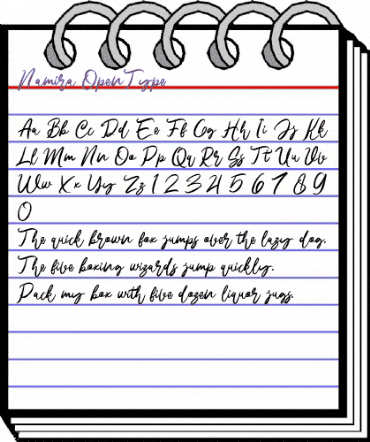 Namira OpenType
Aa Bb Cc Dd Ee Ff Gg Hh Ii Jj Kk
Ll Mm Nn Oo Pp Qq Rr Ss Tt Uu Vv
Ww Xx Yy Zz 1 2 3 4 5 6 7 8 9
0
The quick brown fox jumps over the lazy dog.
The five boxing wizards jump quickly.
Pack my box with five dozen liquor jugs.